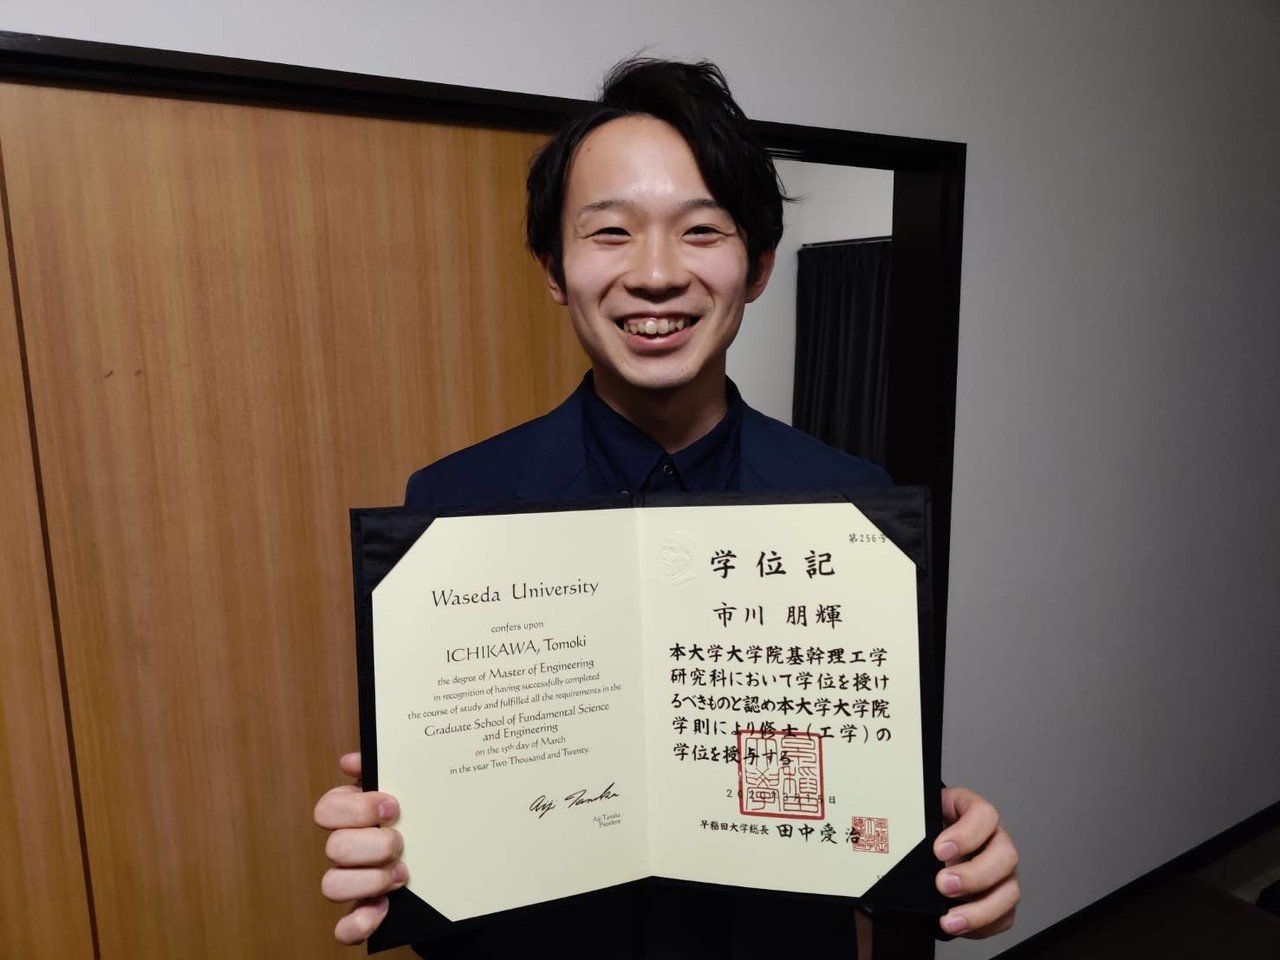 Waseda University
confers upon
ICHIKAWA, Tomoki
the degree of Master of Engineering
in recognition of having successfully completed
the course of study and fulfilled all the requirements in the
Graduate School of Fundamental Science
and Engineering
on the 15th day of March
in the year Two Thousand and Twenty.
Aiji Tanaka
President
第256号
学位記
市川 朋輝
本大学大学院基幹理工学
研究科において学位を授け
るべきものと認め本大学大学院
学則により修士(工学)の
学位を授与する
早稲田大学総長 田中愛治